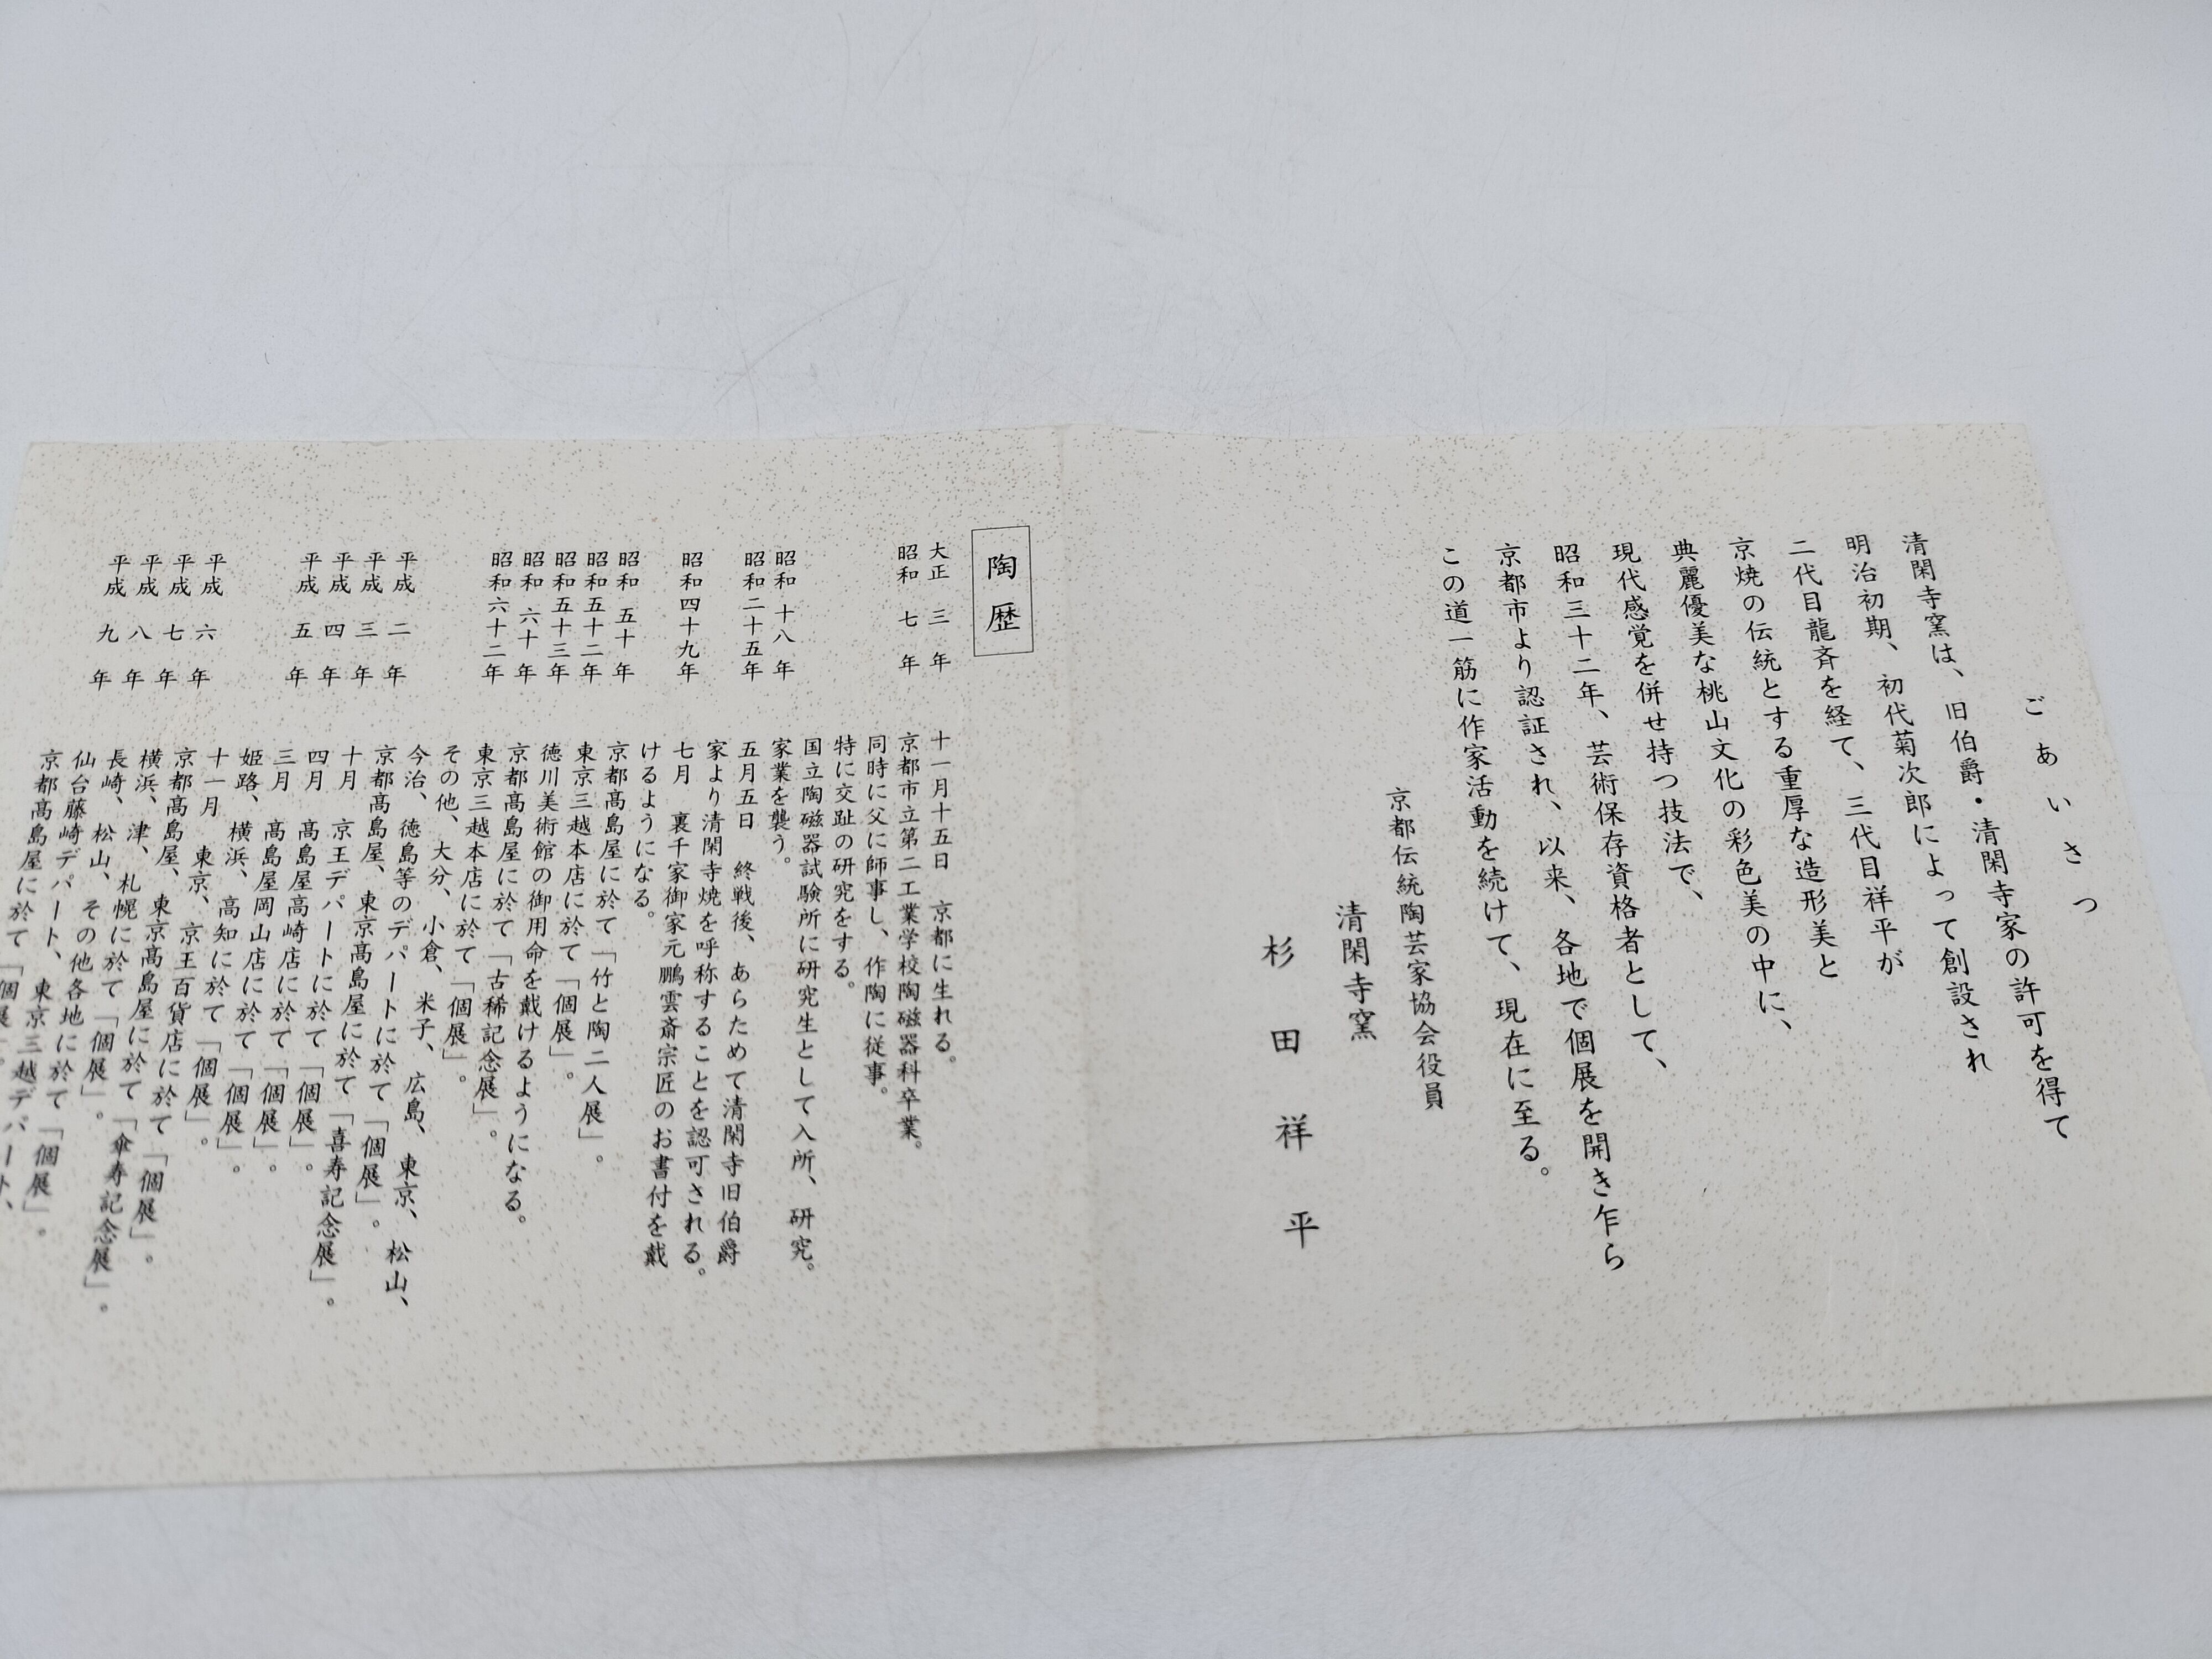 ごあいさつ
清閑寺窯は、旧伯爵・清閑寺家の許可を得て
明治初期、初代菊次郎によって創設され
二代目龍斉を経て、三代目祥平が
京焼の伝統とする重厚な造形美と
典麗優美な桃山文化の彩色美の中に、
現代感覚を併せ持つ技法で、
昭和三十二年、芸術保存資格者として、
京都市より認証され、以来、各地で個展を開き乍ら
この道一筋に作家活動を続けて、現在に至る。
京都伝統陶芸家協会役員
清閑寺窯
杉田祥平
陶歴
大正三年 十一月十五日 京都に生れる。
昭和七年 京都市立第二工業学校陶磁器科卒業。
同時に父に師事し、作陶に従事。
特に交趾の研究をする。
国立陶磁器試験所に研究生として入所、研究。
昭和十八年 家業を襲う。
昭和二十五年 五月五日 終戦後、あらためて清閑寺旧伯爵
家より清閑寺焼を呼称することを認可される。
昭和四十九年 七月 裏千家御家元鵬雲斎宗匠のお書付を戴
けるようになる。
昭和五十年 京都髙島屋に於て「竹と陶二人展」。
昭和五十二年 東京三越本店に於て「個展」。
昭和五十三年 徳川美術館の御用命を戴けるようになる。
昭和六十年 京都髙島屋に於て「古稀記念展」。
昭和六十二年 東京三越本店に於て「個展」。
その他、大分、小倉、米子、広島、東京、松山、
今治、徳島等のデパートに於て「個展」。
平成二年 京都髙島屋、東京髙島屋に於て「喜寿記念展」。
平成三年 十月 京王デパートに於て「個展」。
平成四年 四月 髙島屋高崎店に於て「個展」。
平成五年 三月 髙島屋岡山店に於て「個展」。
姫路、横浜、高知に於て「個展」。
十一月 東京、京王百貨店に於て「個展」。
平成六年 京都髙島屋、東京髙島屋に於て「傘寿記念展」。
平成七年 横浜、津、札幌に於て「個展」。
平成八年 長崎、松山、その他各地に於て「個展」。
平成九年 仙台藤崎デパート、東京三越デパート、
京都髙島屋に於て「個展」。